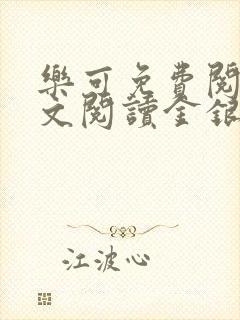 樂可免費閱
文閱讀金銀
江波心